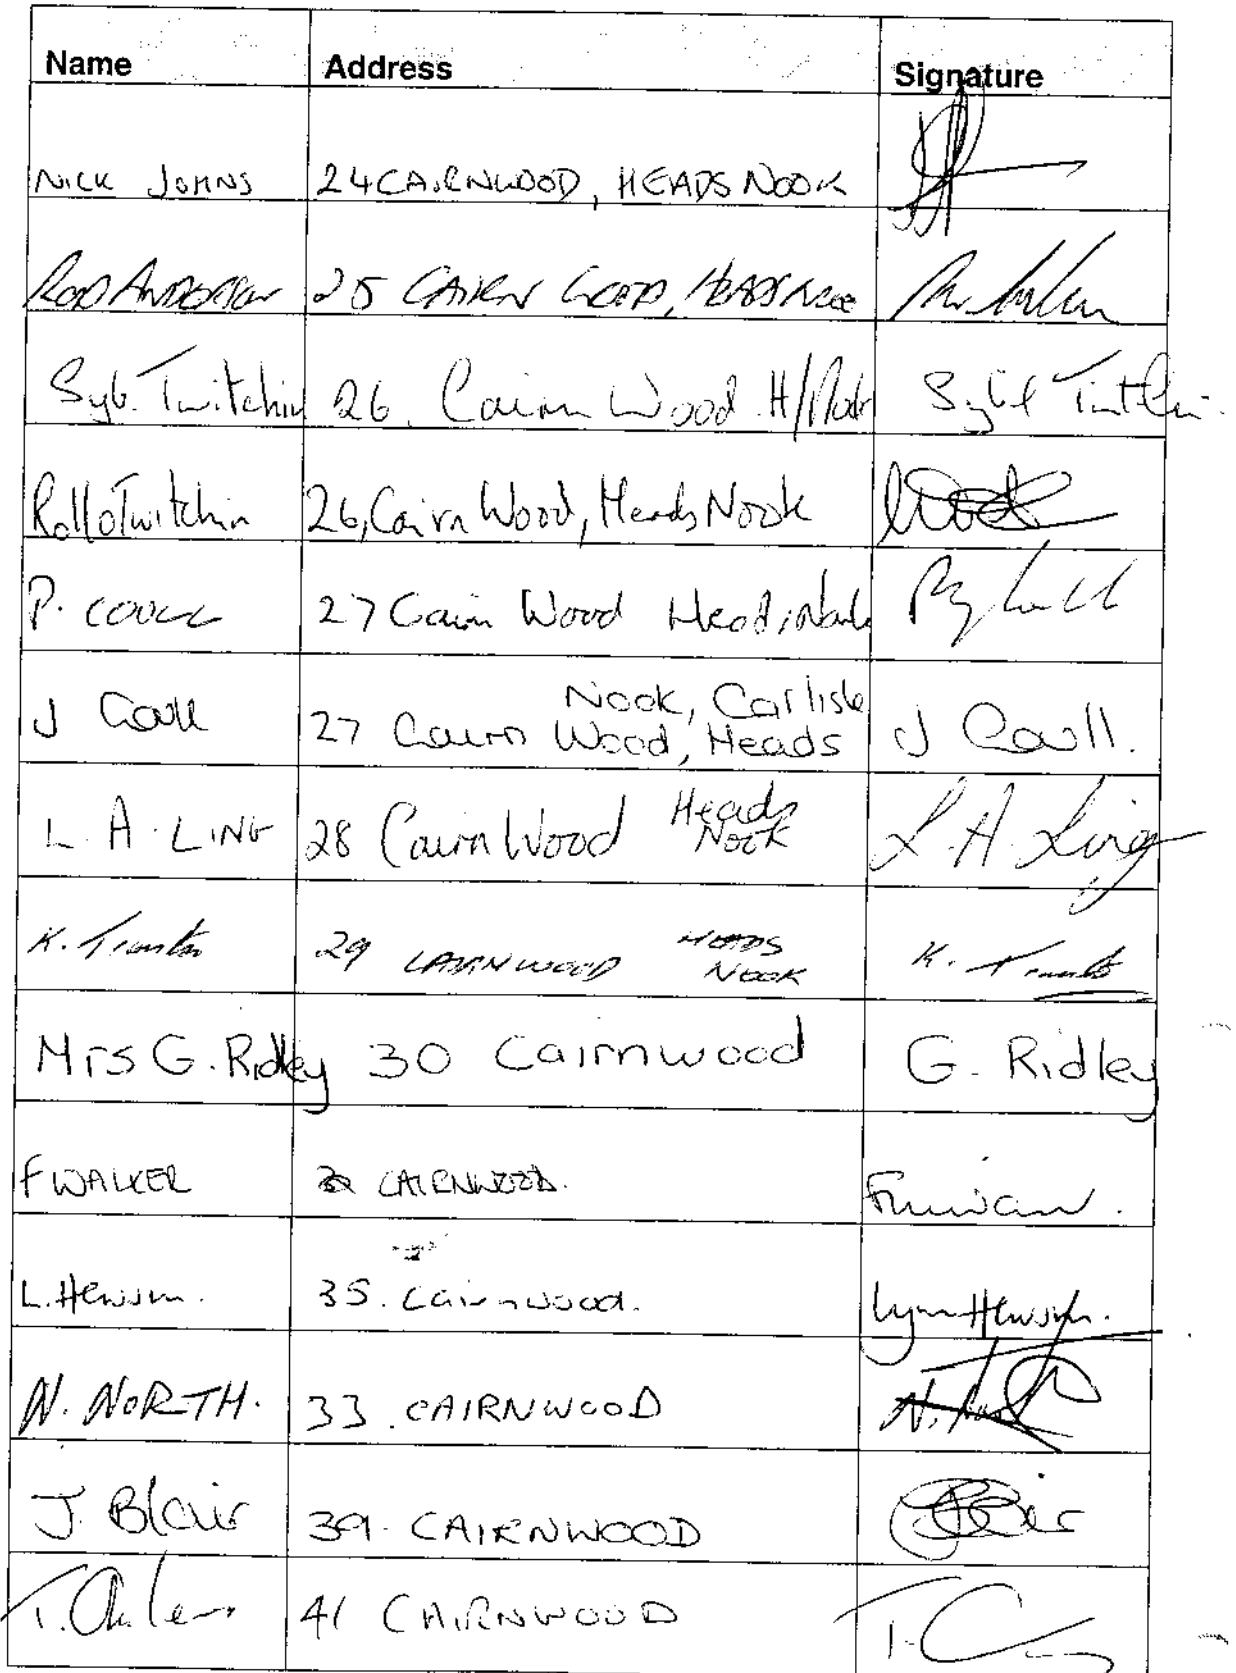 Name Address Signature
NICK JOHNS 24 CAIRNWOOD, HEADS NOOK
ROD ANDERSON 25 CAIRN WOOD, HEADS NOOK
Syb. Twitchin 26, Cairn Wood H/Nook Sybil Twitchin
Rollo Twitchin 26, Cairn Wood, Heads Nook
P. 27 Cairn Wood Heads Nook
Nook, Carlisle
J 27 Cairn Wood, Heads J
Heads
L. A. LING 28 Cairn Wood Nook L. A. Ling
HEADS
K. 29 CAIRNWOOD NOOK K.
Mrs G. Ridley 30 Cairnwood G. Ridley
F WALKER CAIRNWOOD.
L. Hewson. 35. Cairnwood. Lynn Hewson.
N. NORTH. 33. CAIRNWOOD N. North
J. Blair 39. CAIRNWOOD
T. 41 CAIRNWOOD T.